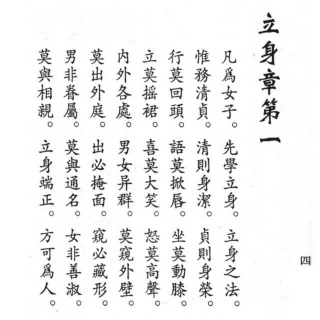 立身章第一
凡爲女子。先學立身。立身之法。
惟務清貞。清則身潔。貞則身榮。
行莫回頭。語莫掀唇。坐莫動膝。
立莫摇裙。喜莫大笑。怒莫高聲。
内外各處。男女异群。莫窺外壁。
莫出外庭。出必掩面。窺必藏形。
男非眷屬。莫與通名。女非善淑。
莫與相親。立身端正。方可爲人。
四